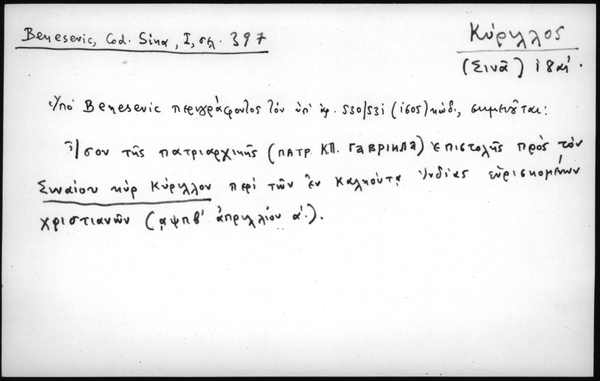 Benesevic, Cod. Sina, I, σελ. 397
Κύριλλος
(Σινᾶ) 18 αἰ.
Ὑπὸ Benesevic περιγράφοντος τὸν ὑπ' ἀρ. 530/531 (1605) κώδ., σημειοῦται:
Ἴσον τῆς πατριαρχικῆς (ΠΑΤΡ. ΚΠ. ΓΑΒΡΙΗΛ) ἐπιστολῆς πρὸς τὸν
Σιναίου κὺρ Κύριλλον περὶ τῶν ἐν Καλκούτα Ἰνδίας εὑρισκομένων
χριστιανῶν (αψπβ' ἀπριλλίου α').